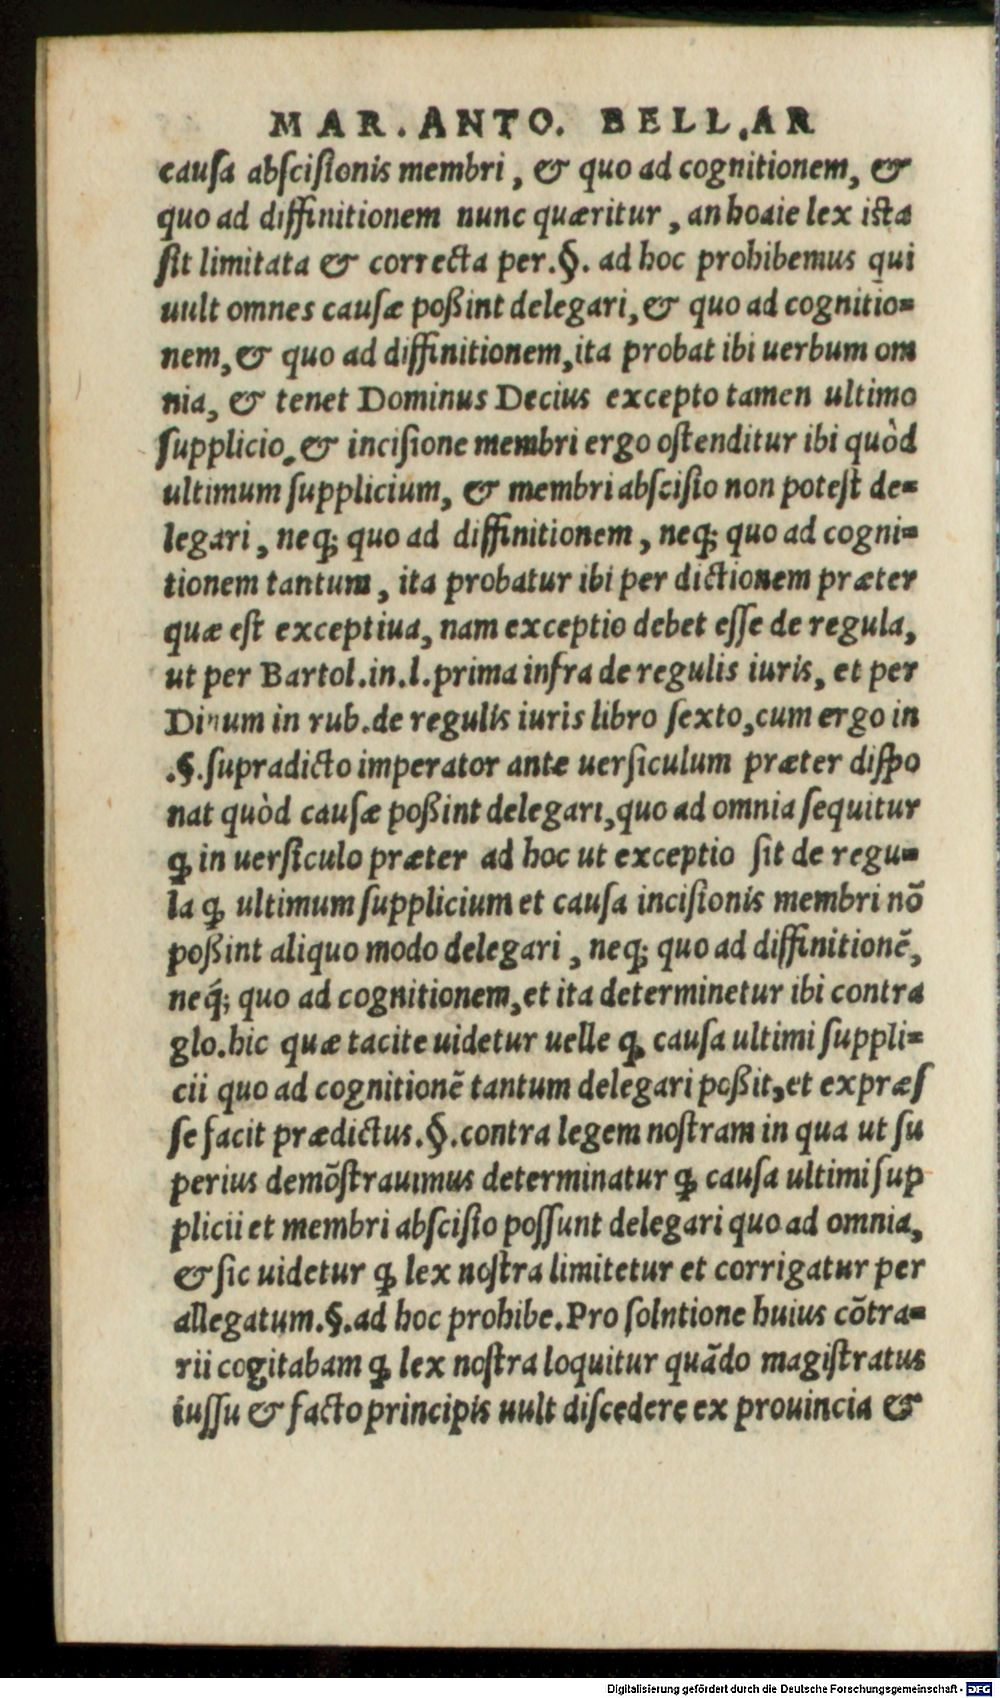 MAR. ANTO. BELL. AR
cauſa abſciſionis membri, & quo ad cognitionem, &
quo ad diffinitionem nunc quæritur, an hodie lex iſta
ſit limitata & correcta per. §. ad hoc prohibemus qui
uult omnes cauſæ poßint delegari, & quo ad cognitio-
nem, & quo ad diffinitionem, ita probat ibi uerbum om
nia, & tenet Dominus Decius excepto tamen ultimo
ſupplicio, & inciſione membri ergo oſtenditur ibi quòd
ultimum ſupplicium, & membri abſciſio non poteſt de-
legari, neq; quo ad diffinitionem, neq; quo ad cogni-
tionem tantum, ita probatur ibi per dictionem præter
quæ eſt exceptiua, nam exceptio debet eſſe de regula,
ut per Bartol. in. l. prima infra de regulis iuris, et per
Dinum in rub. de regulis iuris libro ſexto, cum ergo in
.§. ſupradicto imperator ante uerſiculum præter diſpo
nat quòd cauſæ poßint delegari, quo ad omnia ſequitur
ꝙ in uerſiculo præter ad hoc ut exceptio ſit de regu-
la ꝙ ultimum ſupplicium et cauſa inciſionis membri nō
poßint aliquo modo delegari, neq; quo ad diffinitionē,
neq́; quo ad cognitionem, et ita determinetur ibi contra
glo. hic quæ tacite uidetur uelle ꝙ cauſa ultimi ſuppli-
cii quo ad cognitionē tantum delegari poßit, et expræſ
ſe facit prædictus. §. contra legem noſtram in qua ut ſu
perius demōſtrauimus determinatur ꝙ cauſa ultimi ſup
plicii et membri abſciſio poſſunt delegari quo ad omnia,
& ſic uidetur ꝙ lex noſtra limitetur et corrigatur per
allegatum. §. ad hoc prohibe. Pro ſolntione huius cōtra-
rii cogitabam ꝙ lex noſtra loquitur quādo magiſtratus
iuſſu & facto principis uult diſcedere ex prouincia &
Digitalisierung gefördert durch die Deutsche Forschungsgemeinschaft - DFG